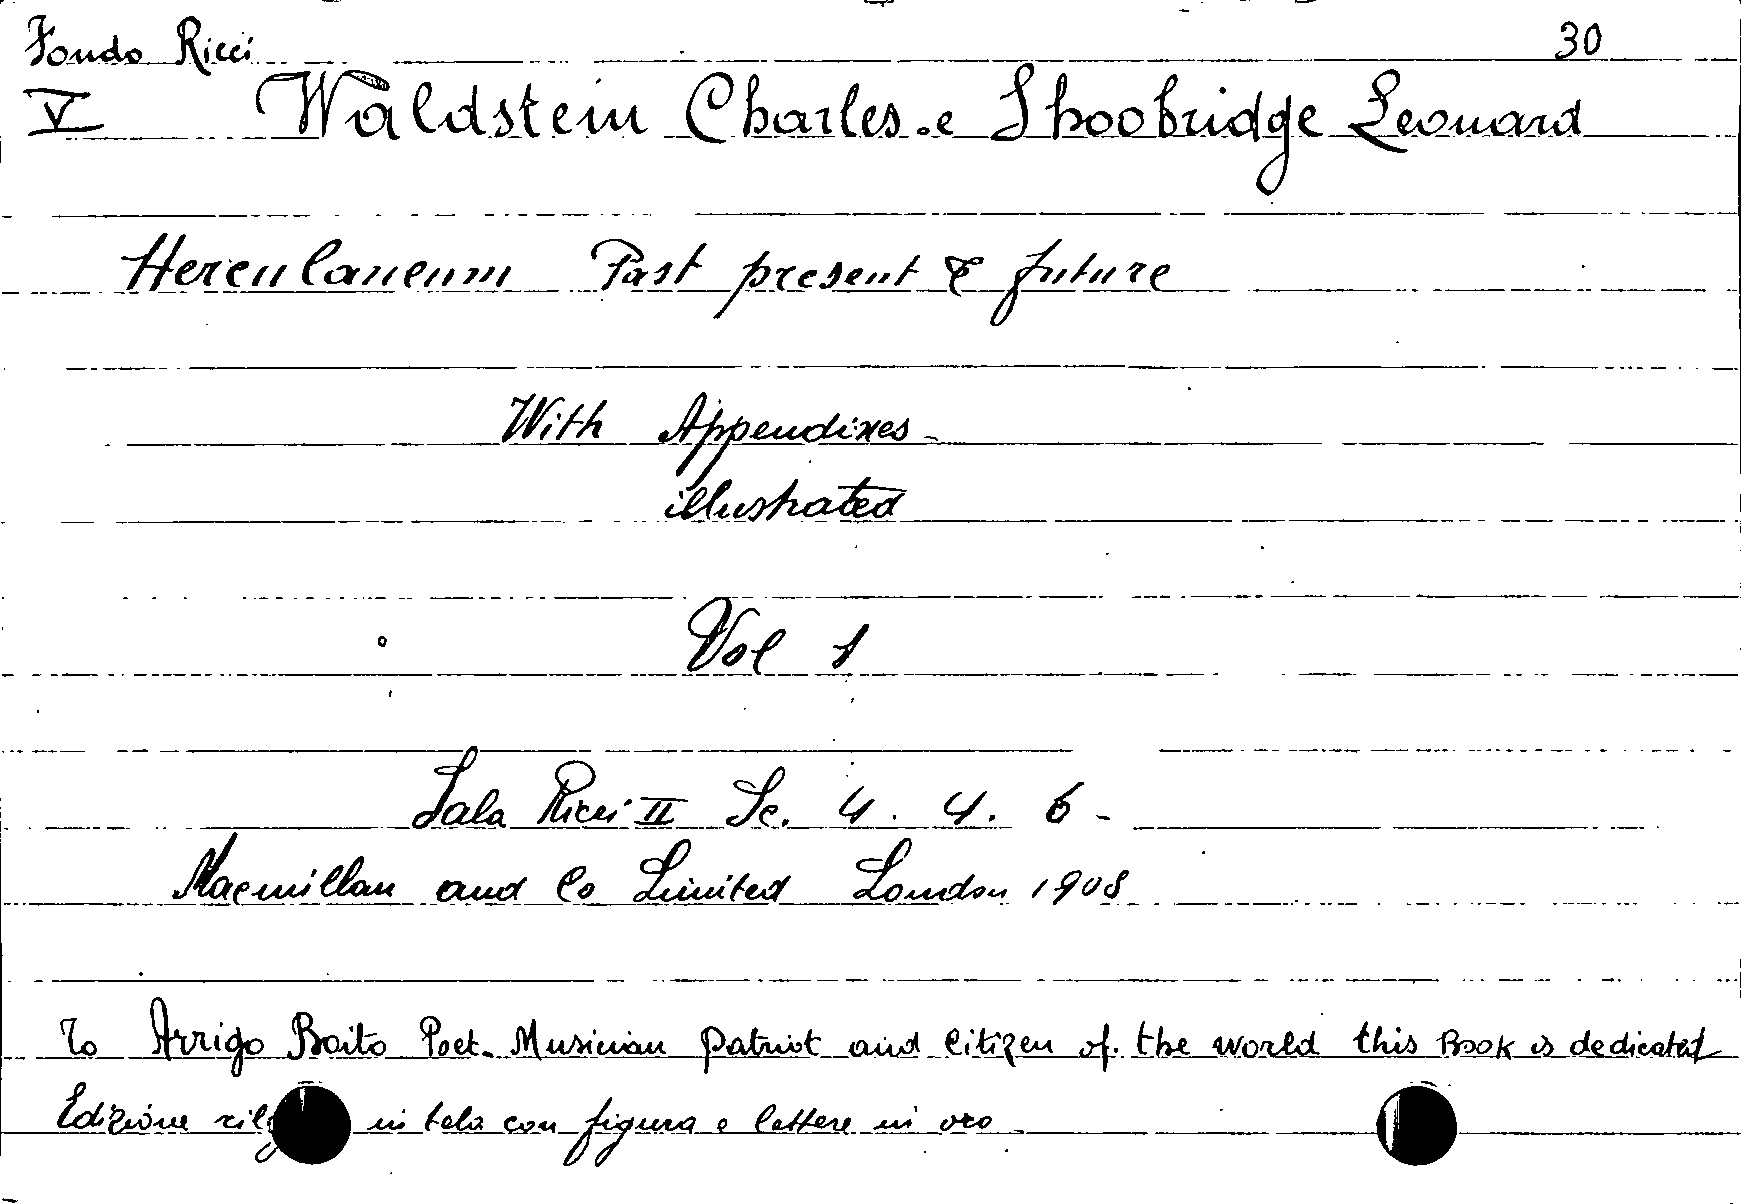 Fondo Ricci 30
V Waldstein Charles e Shoobridge Leonard
Herculaneum Past present & future
With Appendixes
illustrated
Vol 1
Sala Ricci II Sc. 4. 4. 6-
Macmillan and Co Limited London 1908
To Arrigo Boito Poet. Musician patriot and citizen of the world this Book is dedicated
Edizione in tela con figura e lettere in oro